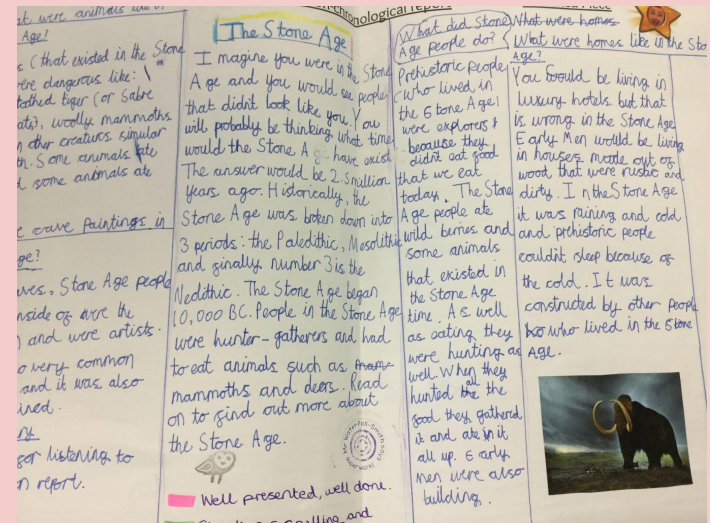 at were animals like in
Age?
s (that existed in the Stone
ere dangerous like:
toothed tiger (or Sabre
ats), woolly mammoths
other creaturs simular
th. Some animals ate
d some animals ate
e cave paintings in
ge?
ves, Stone Age people
nside of were the
) and were artists.
o very common
and it was also
ined.
ry
for listening to
n report.
n-chronological report
The Stone Age
Imagine you were in the Stone
Age and you would see people
that didn't look like you. You
will probably be thinking, what time
would the Stone Age have exist
The answer would be 2.5 million
years ago. Historically, the
Stone Age was broken down into
3 periods: the Paleolithic, Mesolithic
and finally number 3 is the
Neolithic. The Stone Age began
10,000 BC. People in the Stone Age
were hunter-gatherers and had
to eat animals such as mam
mammoths and deers. Read
on to find out more about
the Stone Age.
Mr Waterfall-Smith Says
Good work!
Well presented, well done.
spelling and
What did Stone
Age people do?
Prehistoric people
(who lived in
the Stone Age)
were explorers
because they
didn't eat food
that we eat
today. The Stone
Age people ate
wild berries and
some animals
that existed in
the Stone Age
time. As well
as eating they
were hunting as
well. When they
hunted all the
food they gathered
it and ate it
all up. Early
men were also
building.
What were homes
What were homes like in the Sto
Age?
You would be living in
luxury hotels but that
is wrong in the Stone Age
Early Men would be living
in houses made out of
wood that were rustic and
dirty. In the Stone Age
it was raining and cold
and prehistoric people
couldn't sleep because of
the cold. It was
constructed by other people
who lived in the Stone
Age.